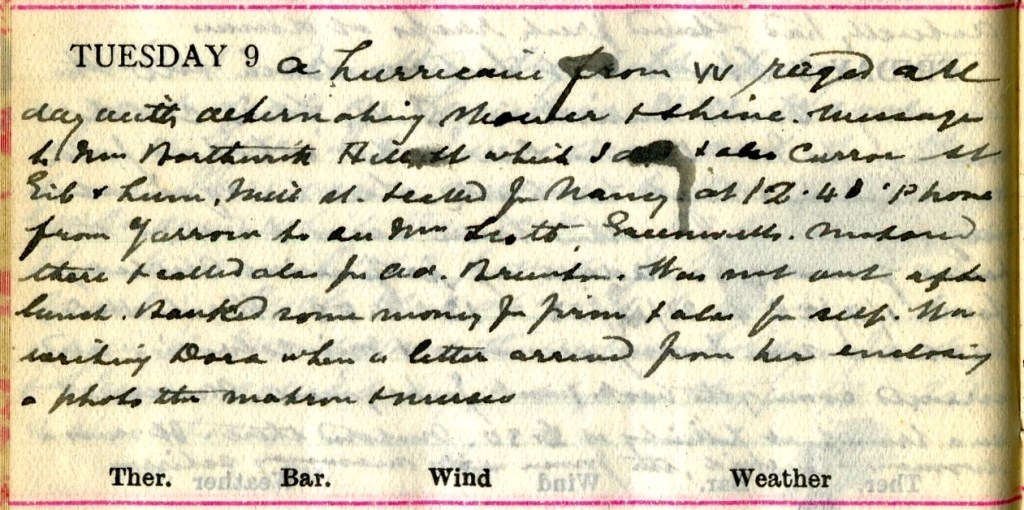 TUESDAY 9 A hurricane from W raged all
day with alternating shower & shine. Message
to Mrs Borthwick which I & also Curror St
& Lunn, Mill St. & called for Nancy at 12.40 'Phone
from Yarrow to see Mrs Scott, Greenwells. Motored
there & called also for Ad. Brunton. Was not out after
lunch. Banked some money for firm & also for self. Was
writing Dora when a letter arrived from her enclosing
a photo the matron & nurses
Ther. Bar. Wind Weather